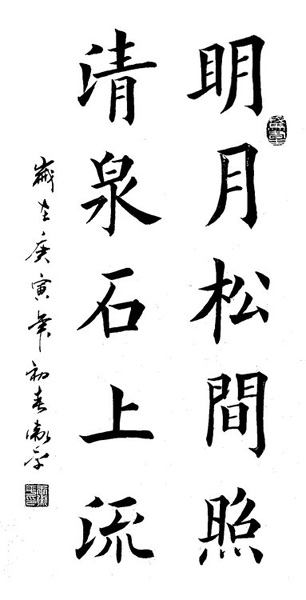 明月松間照
清泉石上流
歲在庚寅年初春衛平